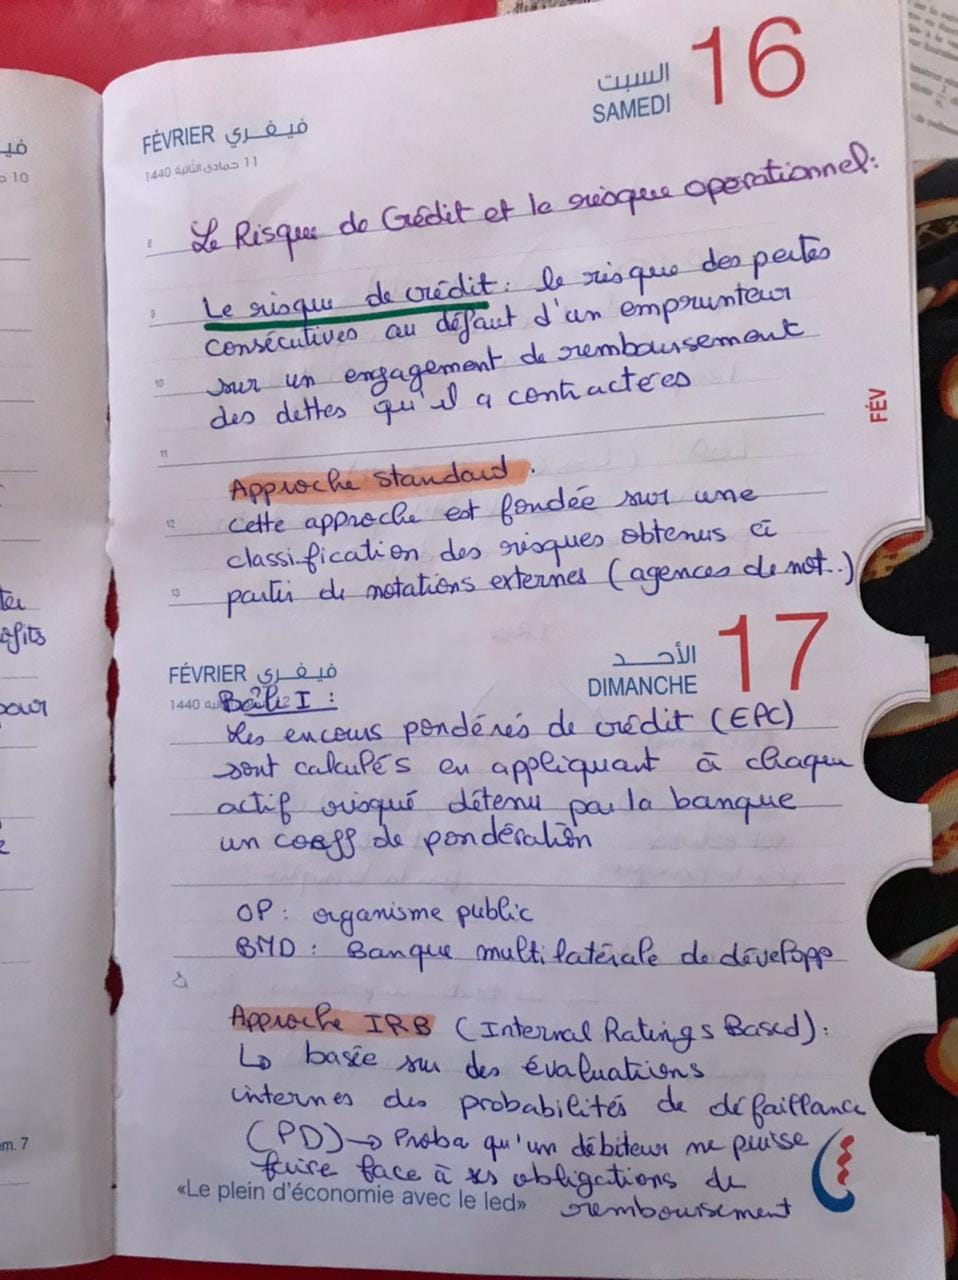 16
السبت
SAMEDI
FÉVRIER فيفري
11 جمادى الثانية 1440
Le Risque de Crédit et le risque operationnel:
8
Le risque de crédit: le risque des pertes
9
consécutives au défaut d'un emprunteur
10
sur un engagement de remboursement
des dettes qu'il a contractées
FÉV
11
Approche Standard.
12
Cette approche est fondée sur une
classification des risques obtenus à
13
partir de notations externes (agences de not..)
17
الأحد
DIMANCHE
FÉVRIER فيفري
1440
Bâle I :
Les encours pondérés de crédit (EPC)
sont calculés en appliquant à chaque
actif risqué détenu par la banque
un coeff de pondération
OP: organisme public
BMD: Banque multilatérale de développ
Approche IRB (Internal Ratings Based):
↳ basée sur des évaluations
internes des probabilités de défaillance
(PD)→ Proba qu'un débiteur ne puisse
faire face à ses obligations de
remboursement
«Le plein d'économie avec le led»
10
ofits
pour
em. 7